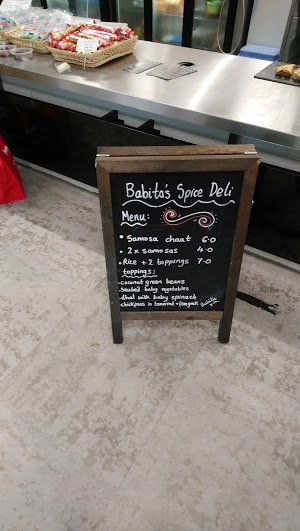 Babita's Spice Deli
Menu:
• Samosa chaat 6.0
• 2 x samosas 4.0
• Rice + 2 toppings 7.0
toppings:
-coconut green beans
-Sauted baby vegetables
-dhal with baby spinach
-chickpeas in tamarind +
Babita